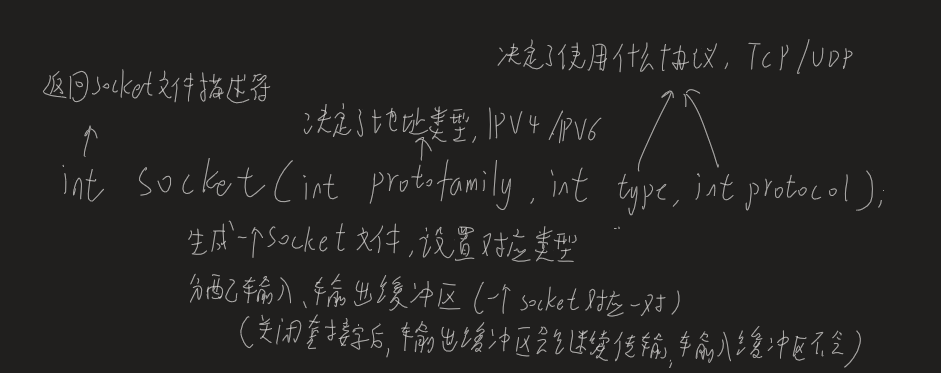 决定了使用什么协议, TCP/UDP
返回socket文件描述符
决定了地址类型, IPV4/IPV6
int socket(int protofamily, int type, int protocol);
生成一个socket文件,设置对应类型
分配了输入、输出缓冲区(一个socket对应一对)
(关闭套接字后,输出缓冲区会继续传输,输入缓冲区不会)